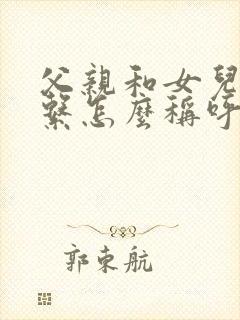 父親和女兒
繫怎麼稱呼
郭東航